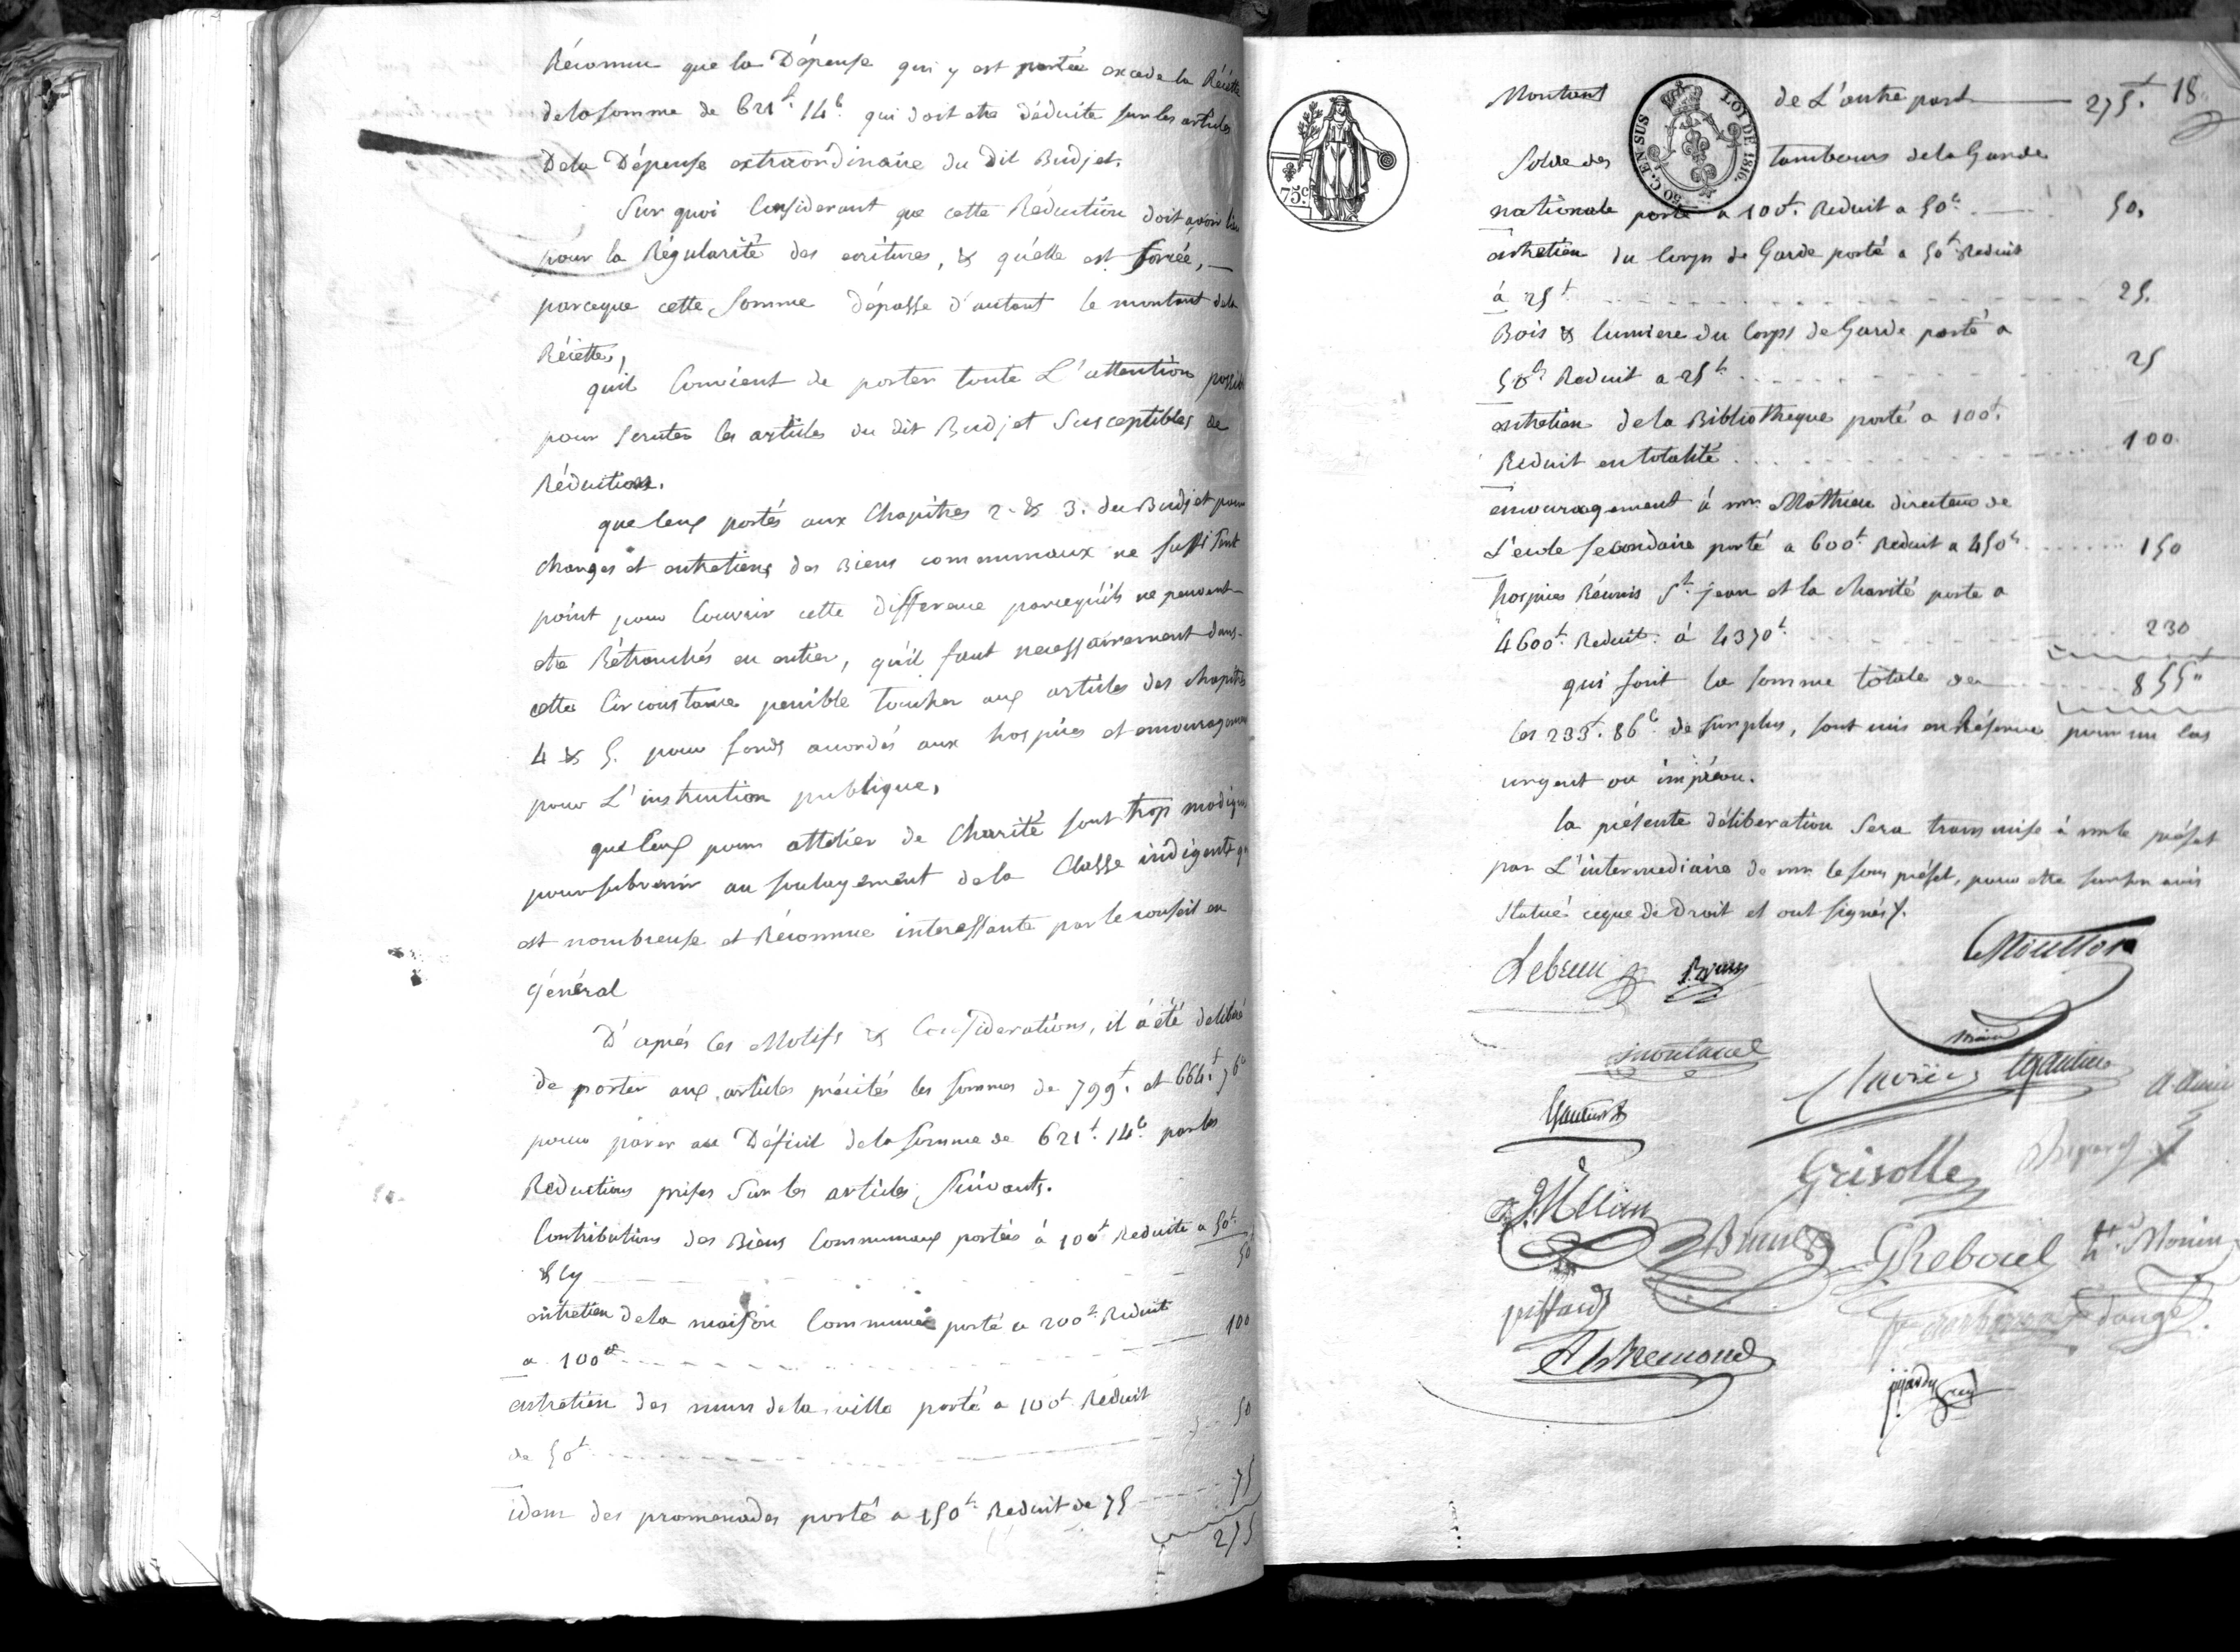 Réconnu que la Dépense qui y est portée excede la Récette
dela somme de 621f. 14c. qui doit etre déduite sur les articles
Dela Dépense extraordinaire du dit Budjet.
Sur quoi Considerant que cette Réduction doit avoir lieu
pour la Régularité des ecritures, & qu'elle est forcée,
parceque cette Somme dépasse d'autant le montant dela
Récettes,
qu'il Convient de porter toute L'attention possible
pour scruter les articles du dit Budjet Susceptibles de
Réductions.
que ceux portés aux Chapitres 2. & 3. du Budjet pour
charges et entretiens des Biens communaux ne suffisent
point pour Couvrir cette differance parcequ'ils ne peuvent
etre Rétranchés en entier, qu'il faut necessairement dans
cette Circonstance penible toucher aux articles des chapitres
4 & 5. pour fonds accordés aux hospices et encouragemens
pour L'instruction publique,
que ceux pour attelier de Charité sont trop modiques
pour subvenir au soulagement dela Classe indigente qui
est nombreuse et Réconnue interessante par le conseil en
général
D'aprés ces Motifs & Considerations, il a été deliberé
de porter aux articles précités les sommes de 799f. et 664f. 76c
pour parer au Déficit dela Somme de 621f. 14c. par les
Réductions prises Sur les articles Suivants.
Contributions des Biens Communaux portées à 100f Reduite a 50f.
& cy 50
entretien dela maison Commune porté a 200f. Reduit
a 100f 100
entretien des murs dela ville porté a 100f Réduit
de 50f 50
idem des promenades porté a 150f. Reduit de 75 75
275
75c.
50 C. EN SUS LOI DE 1816.
18
Montant de L'autre part 275f.
Solde des tambours dela Garde
nationale porté a 100f. Reduit a 50f. 50.
entretien du Corps de Garde porté a 50f Reduit
à 25f 25.
Bois & lumiere du Corps de Garde porté a
50f. Reduit a 25f. 25
entretien dela Bibliotheque porté a 100f.
Réduit en totalité 100
encouragement à mr. Mathieu directeur de
L'ecole secondaire porté a 600f. Reduit a 450f. 150
hospices Réunis St. jean et la charité porté a
4600f. Reduit à 4370f. 230
qui font la somme totale de 855f
Les 233f. 86c. de surplus, sont mis en Réserve pour un cas
urgent ou imprévu.
la présente déliberation Sera transmise à mr le préfet
par L'intermediaire de mr le sous préfet, pour etre sur son avis
statué ceque de Droit et ont signés.
Lebrun
Moutton
maire
montanel
Gautier
Grisolle
Brunel
GReboul
hd. Monin
piffard
AhRemond
Daugé